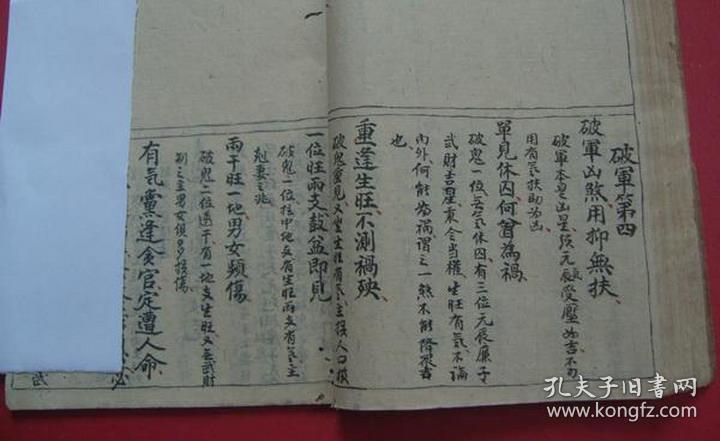 破軍第四
破軍凶煞用抑無扶
破軍本是凶星須元辰受壓如吉不可
用有氣扶助為凶
單見休囚何曾為禍
破鬼一位無氣休囚有三位元辰廉子
武財吉星秉令當權生旺有氣不論
內外何能為禍謂之一煞不能降衆吉
也
重逢生旺不測禍殃
破鬼重見又生生旺有氣主損人口損
一位旺兩支鼓盆即見
破鬼一位在中地支有生旺兩支有氣主
剋妻之兆
兩干旺一地男女頻傷
破鬼二位透干有一地支生旺又無武財
制之主男女俱多損傷
有氣黨逢貪官定遭人命
必
武
孔夫子旧书网
www.kongfz.com